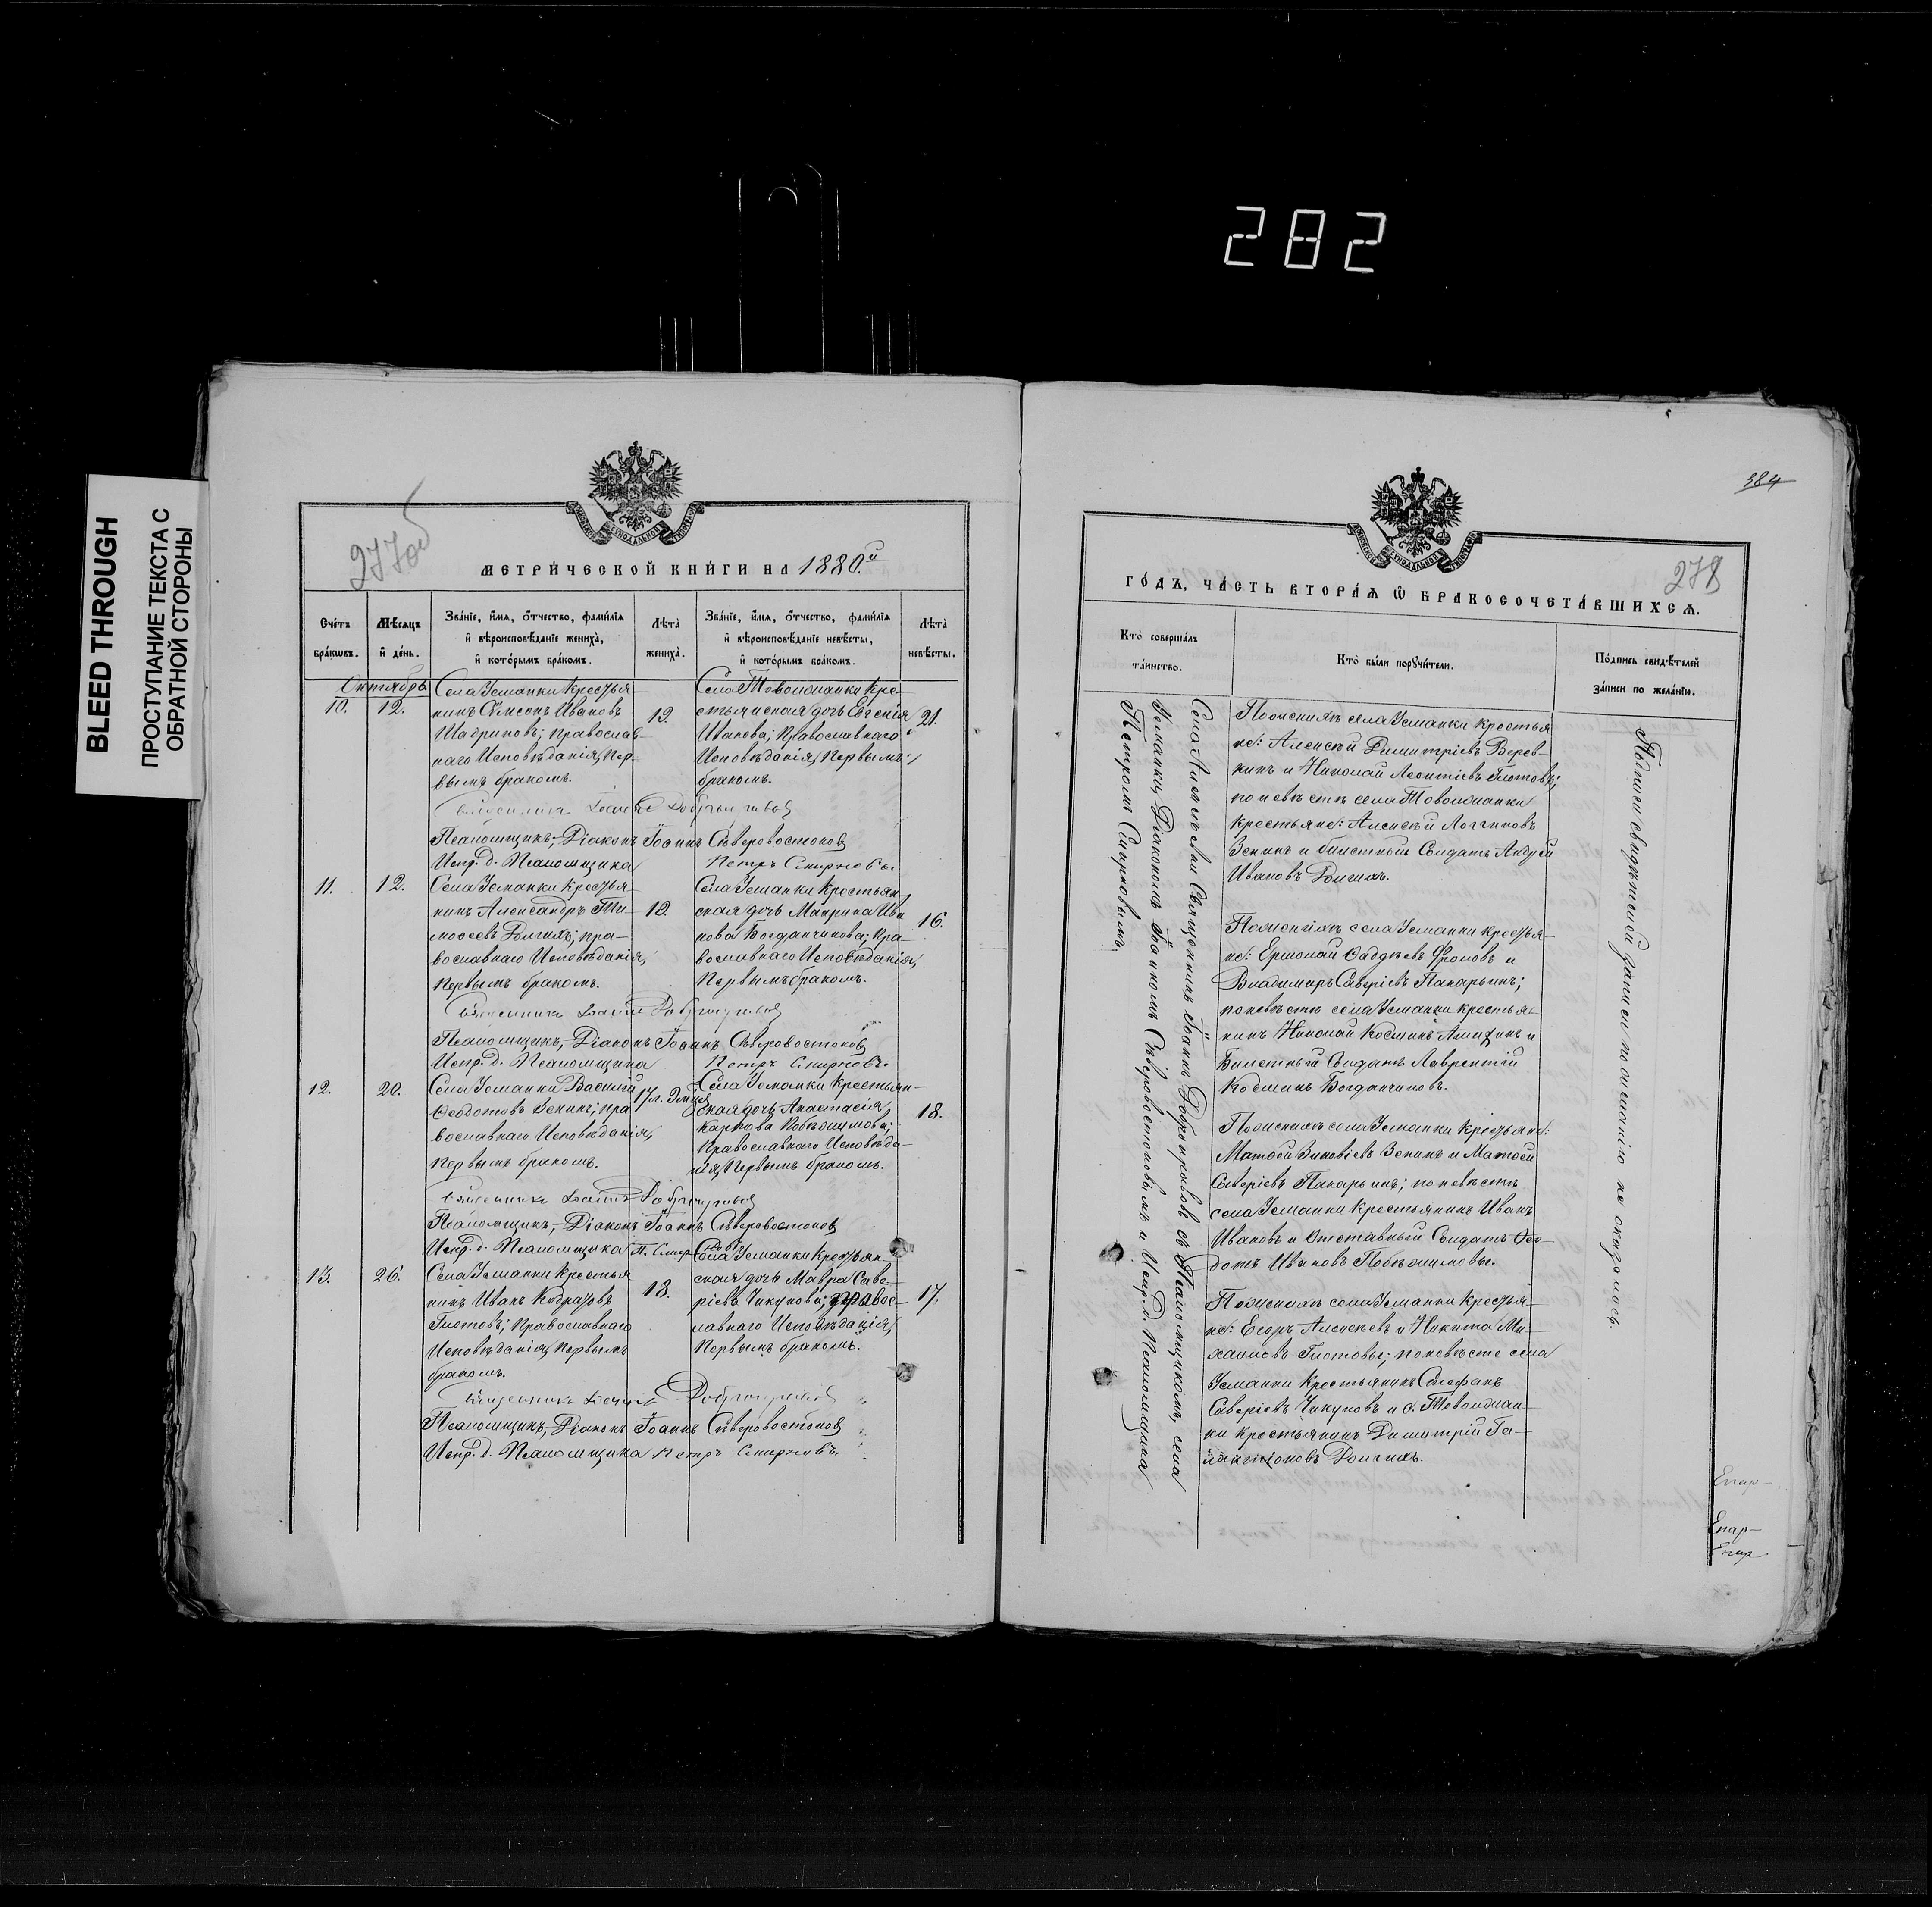 282
BLEED THROUGH
ПРОСТУПАНИЕ ТЕКСТА С
ОБРАТНОЙ СТОРОНЫ
277об
МЕТРИЧЕСКОЙ КНИГИ НА 1880.й
Счетъ браковъ.
Мѣсяцъ и день.
Званіе, имя, отчество, фамилія
и вѣроисповѣданіе жениха,
и которымъ бракомъ.
Лѣта жениха.
Званіе, имя, отчество, фамилія
и вѣроисповѣданіе невѣсты,
и которымъ бракомъ.
Лѣта невѣсты.
Октябрь
10.
12.
Села Усманки Крестья
нинъ Сѵмеонъ Ивановъ
Шадриновъ; Православ-
наго Исповѣданія, Пер-
вымъ бракомъ.
19.
Села Товолжанки Кре-
стьянская дочь Евгенія
Иванова; Православнаго
Исповѣданія, Первымъ
бракомъ.
21.
Священникъ Іоаннъ Добронравовъ
Псаломщикъ,-Діаконъ Іоаннъ Сѣверовостоковъ
Испр. д. Псаломщика Петръ Смирновъ.
11.
12.
Села Усманки Крестья-
нинъ Александръ Ти-
мофеевъ Долгихъ; пра-
вославнаго Исповѣданія,
первымъ бракомъ.
19.
Села Усманки Крестьян
ская дочь Маврина Ива
нова Богданчикова; Пра-
вославнаго Исповѣданія,
Первымъ бракомъ.
16.
Священникъ Іоаннъ Добронравовъ
Псаломщикъ,-Діаконъ Іоаннъ Сѣверовостоковъ
Испр. д. Псаломщика Петръ Смирновъ.
12.
20.
Села Усманки Василій
Ѳеодотовъ Зенинъ; пра
вославнаго Исповѣданія,
первымъ бракомъ.
Села Усманки Крестьян-
ская дочь Анастасія
Карпова Побѣжимова;
Православнаго Исповѣда-
нія, Первымъ бракомъ.
18.
Священникъ Іоаннъ Добронравовъ
Псаломщикъ,-Діаконъ Іоаннъ Сѣверовостоковъ
Испр. д. Псаломщика П. Смирновъ
13.
26.
Села Усманки Крестья
нинъ Иванъ Кодратовъ
Глотовъ; Православнаго
Исповѣданія, Первымъ
бракомъ.
18.
Села Усманки Крестьян-
ская дочь Мавра Саве-
ріева Чикунова; правос-
лавнаго Исповѣданія,
Первымъ бракомъ.
17.
Священникъ Іоаннъ Добронравовъ
Псаломщикъ,-Діаконъ Іоаннъ Сѣверовостоковъ
Испр. д. Псаломщика Петръ Смирновъ.
384
278
ГОДЪ, ЧАСТЬ ВТОРАЯ Ѡ БРАКОСОЧЕТАВШИХСЯ.
Кто совершалъ
таинство.
Кто были поручители.
Подпись свидѣтелей
записи по желанію.
Священникъ Іоаннъ Добронравовъ съ Псаломщикомъ, села
Усманки, Діакономъ Іоанномъ Сѣверовостоковымъ и Испр. д. Псаломщика
Петромъ Смирновымъ.
По женихѣ села Усманки Крестья
не: Алексѣй Димитріевъ Верев-
кинъ и Николай Леонтіевъ Глотовъ;
по невѣстѣ села Товолжанки
крестьяне: Алексѣй Логгиновъ
Зенинъ и билетный Солдатъ Андрей
Ивановъ Долгихъ.
По женихѣ села Усманки крестья-
не: Ермолай Фаддѣевъ Фроловъ и
Владимиръ Саверіевъ Панарьинъ;
по невѣстѣ села Усманки крестья-
нинъ Николай Косминъ и
Билетный Солдатъ Лаврентій
Косминъ Богданчиковъ.
По женихѣ села Усманки Крестьяне:
Матѳей Зиновіевъ Зенинъ и Матѳей
Саверіевъ Панарьинъ; по невѣстѣ
села Усманки Крестьянинъ Иванъ
Ивановъ и Отставный Солдатъ Ѳео-
дотъ Ивановъ Побѣжимовы.
По женихѣ села Усманки Крестья-
не: Егоръ Алексѣевъ и Никита Ми-
хаиловъ Глотовы; по невѣсте села
Усманки Крестьянинъ Стефанъ
Саверіевъ Чикуновъ и с. Товолжан-
ки Крестьянинъ Димитрій Га-
лактіоновъ Долгихъ.
Подписи свидѣтелей записи по желанію не оказалось.
Епар-
Епар-
Епар